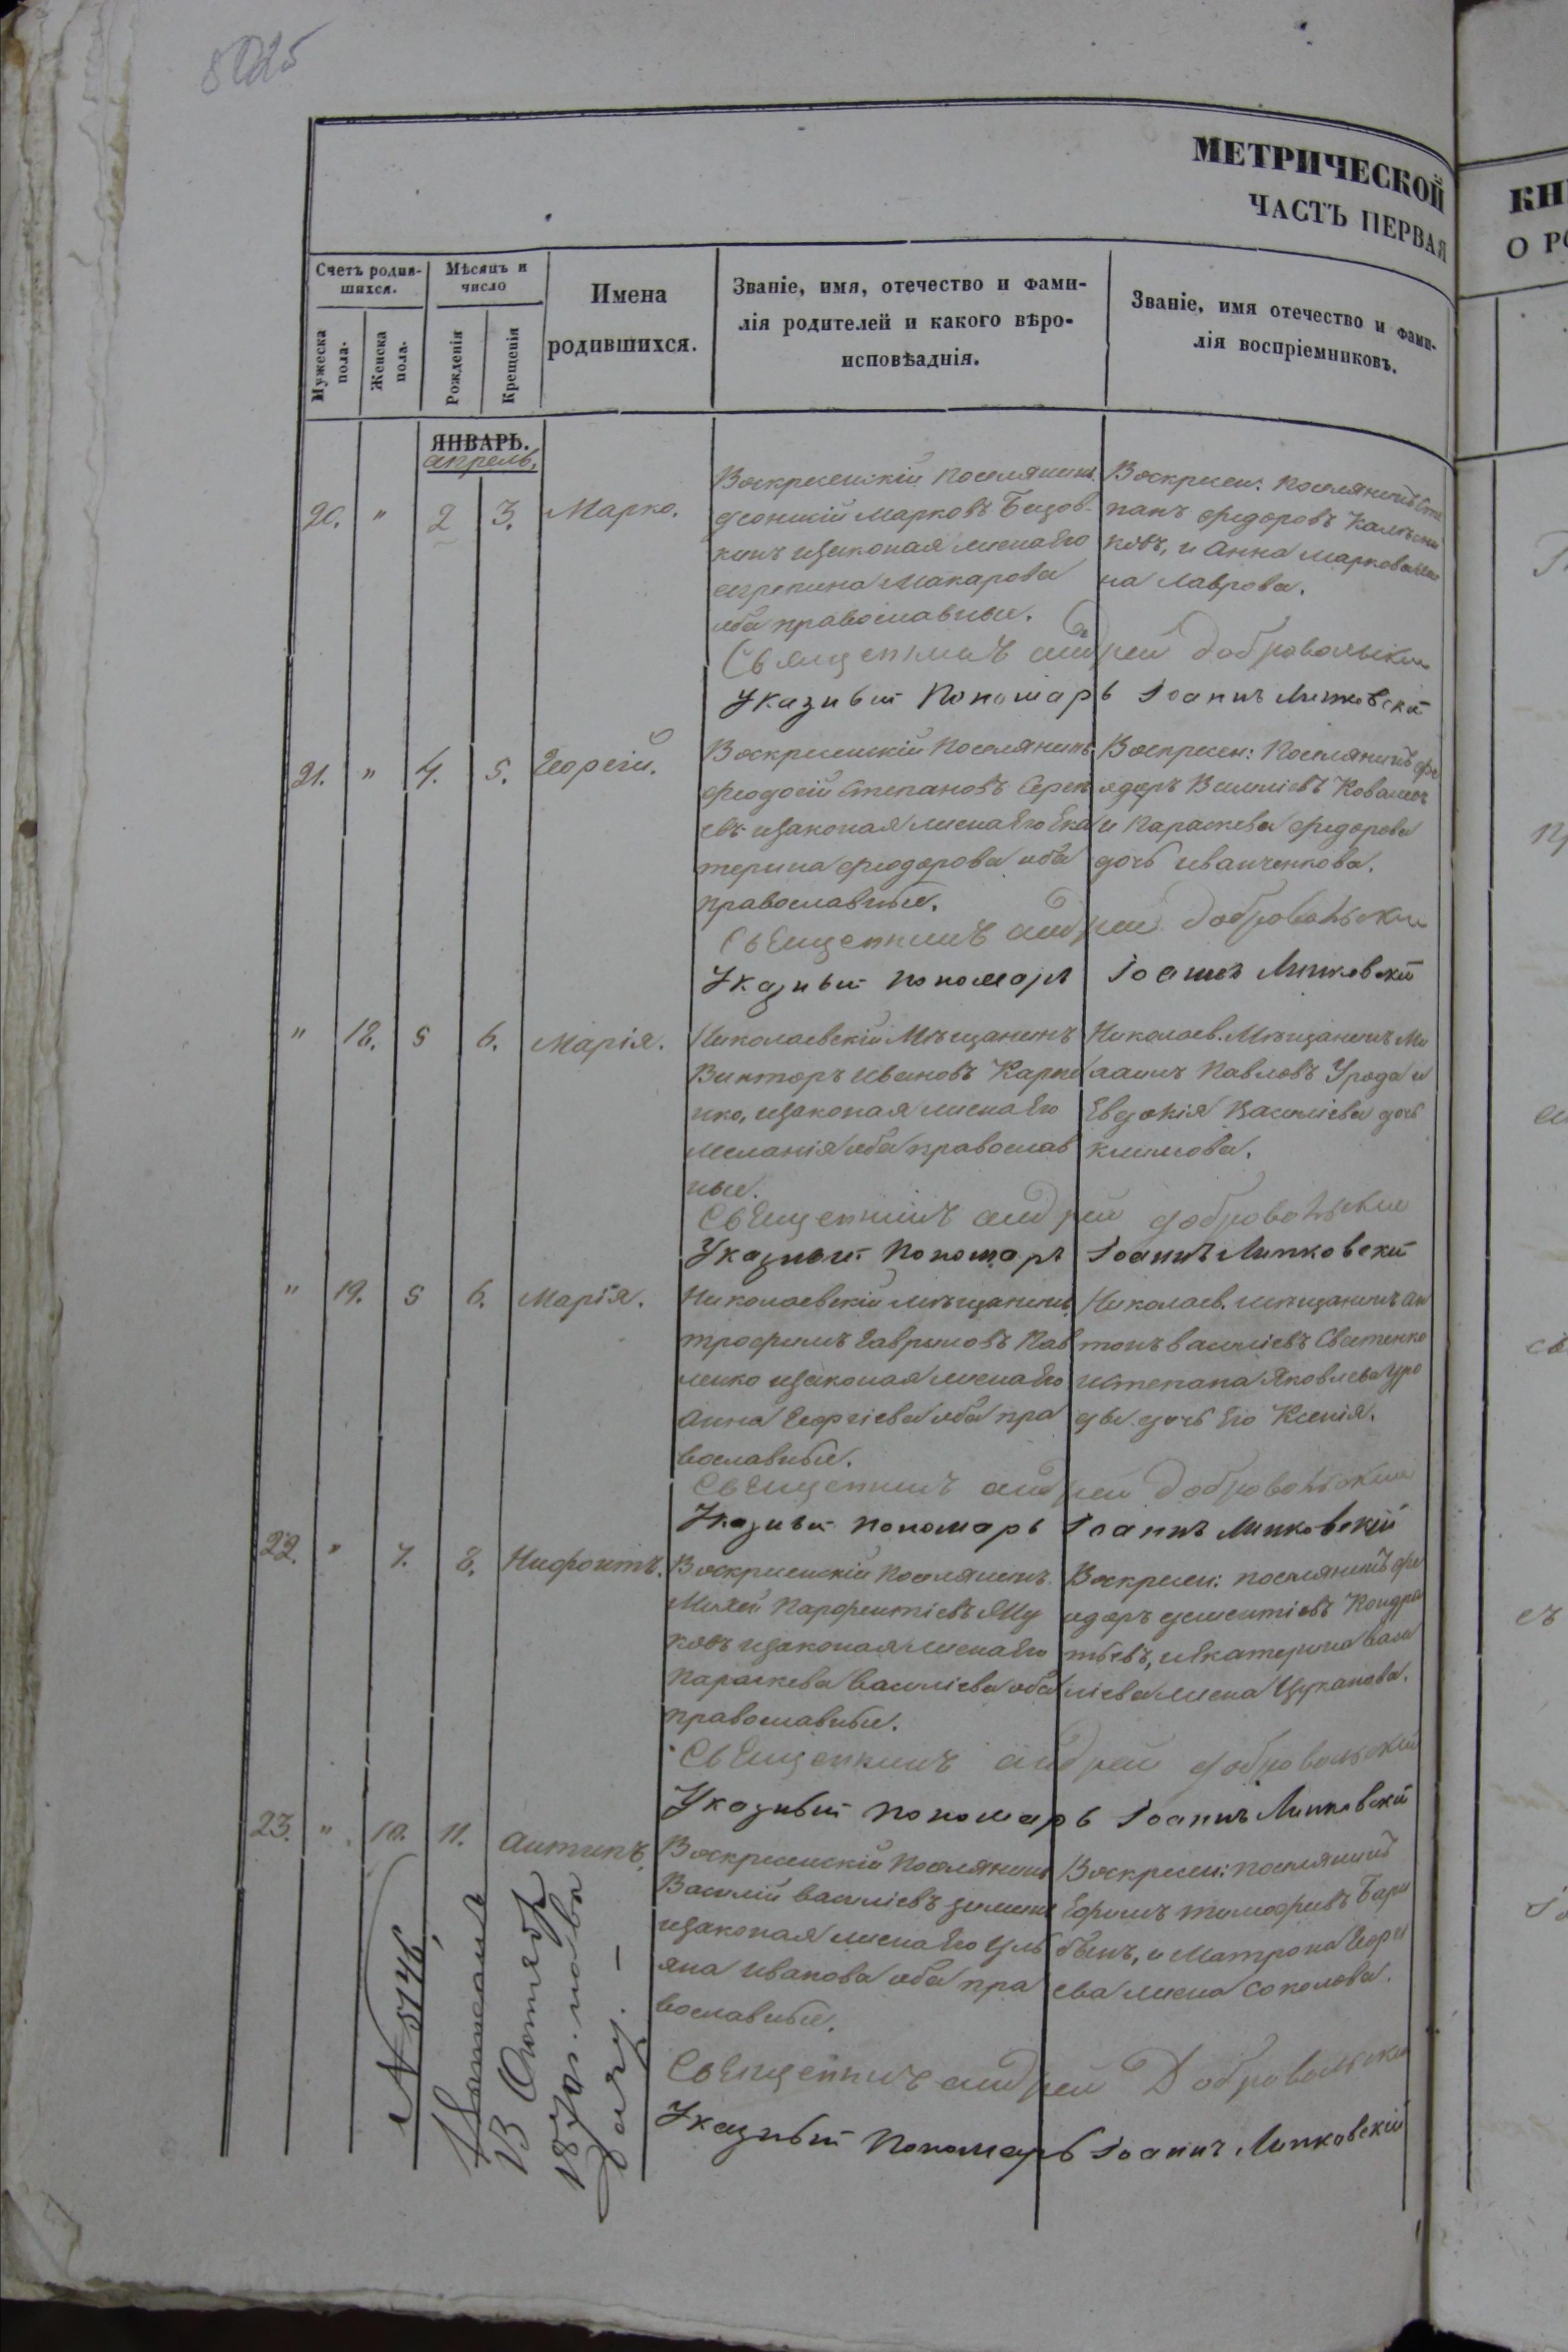 МЕТРИЧЕСКОЙ
ЧАСТЬ ПЕРВАЯ
КН
О РО
Счетъ родив-
шихся.
Мѣсяцъ и
число
Мужеска
пола.
Женска
пола.
Рожденія
Крещенія
Имена
родившихся.
Званіе, имя, отечество и фами-
лія родителей и какого вѣро-
исповѣаднія.
Званіе, имя отечество и фами-
лія воспріемниковъ.
ЯНВАРЬ.
апрель,
20. " 2 3. Марко.
Воскресенскій поселянинъ
Марковъ
кинъ изаконая жена Его
Макарова
оба православные.
Воскресен: поселянинъ Сте
панъ Федоровъ
ковъ, и Анна Маркова
на Лаврова.
Священникъ андрей добровольскій
Указный Пономарь Іоаннъ Липковскій
21. " 4. 5. Георгій.
Воскресенскій Поселянинъ
Феодосій Степановъ
евъ изаконая жена Его Ека
терина Феодорова оба
православные.
Воскресен: Поселянинъ Фе
одоръ Василіевъ
и Параскева Федорова
дочь иванченкова.
Священникъ андрей добровольскій
Указный пономарь Іоаннъ Липковскій
" 18. 5 6. Марія.
Николаевскій Мѣщанинъ
Викторъ Ивановъ Карпе
нко, изаконая жена Его
Меланія оба православ
ные.
Николаев. Мѣщанинъ Ми
хаилъ Павловъ Урода и
Евдокія Василіева дочь
климова.
Священникъ андрей добровольскій
Указный Пономарь Іоаннъ Липковскій
" 19. 5 6. Марія.
Николаевскій мѣщанинъ
трофимъ Гавриловъ Пав
ленко изаконая жена Его
Анна Георгіева оба пра
вославные.
Николаев. мѣщанинъ ан
тонъ василіевъ Сватенко
истепана Яковлева Уро
ды дочь Его Ксенія.
Священникъ андрей добровольскій
Указный пономарь Іоаннъ Липковскій
22. " 7. 8. Нифонтъ.
Воскресенскій Поселянинъ
Михей Парфентіевъ
ковъ изаконая жена Его
Параскева Василіева оба
православные.
Воскресен: поселянинъ Фе
одоръ дементіевъ Кондра
тьевъ, иЕкатерина васи
ліева жена Цуканова.
Священникъ андрей добровольскій
Указный пономарь Іоаннъ Липковскій
23. " 10. 11. Антипъ.
Воскресенскій Поселянинъ
Василій василіевъ зиминъ
изаконая жена Его Уль
яна Иванова оба пра
вославные.
Воскресен: поселянинъ
Ефимъ тимофеевъ
и Матрона Георгі
ева жена соколова.
Священникъ андрей Добровольскій
Указный Пономарь Іоаннъ Липковскій